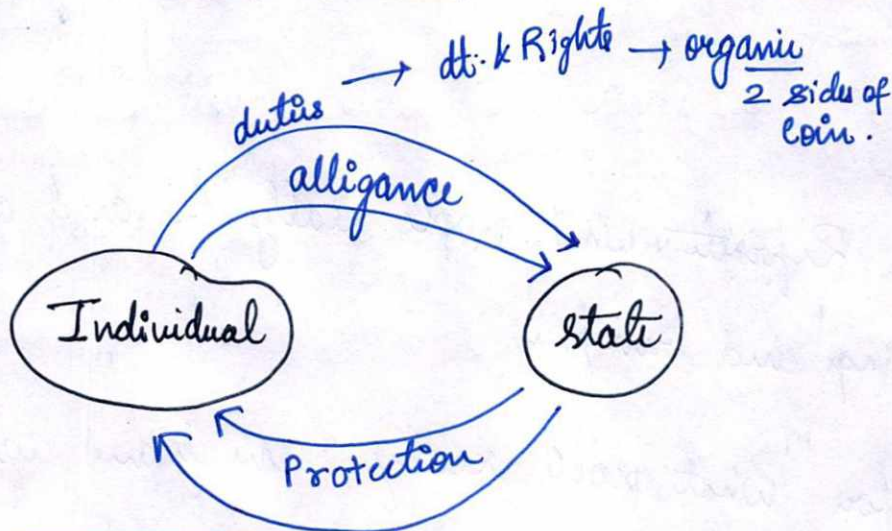 dt. k Rights → organic
2 sides of
coin.
duties →
alligance
Individual
state
Protection